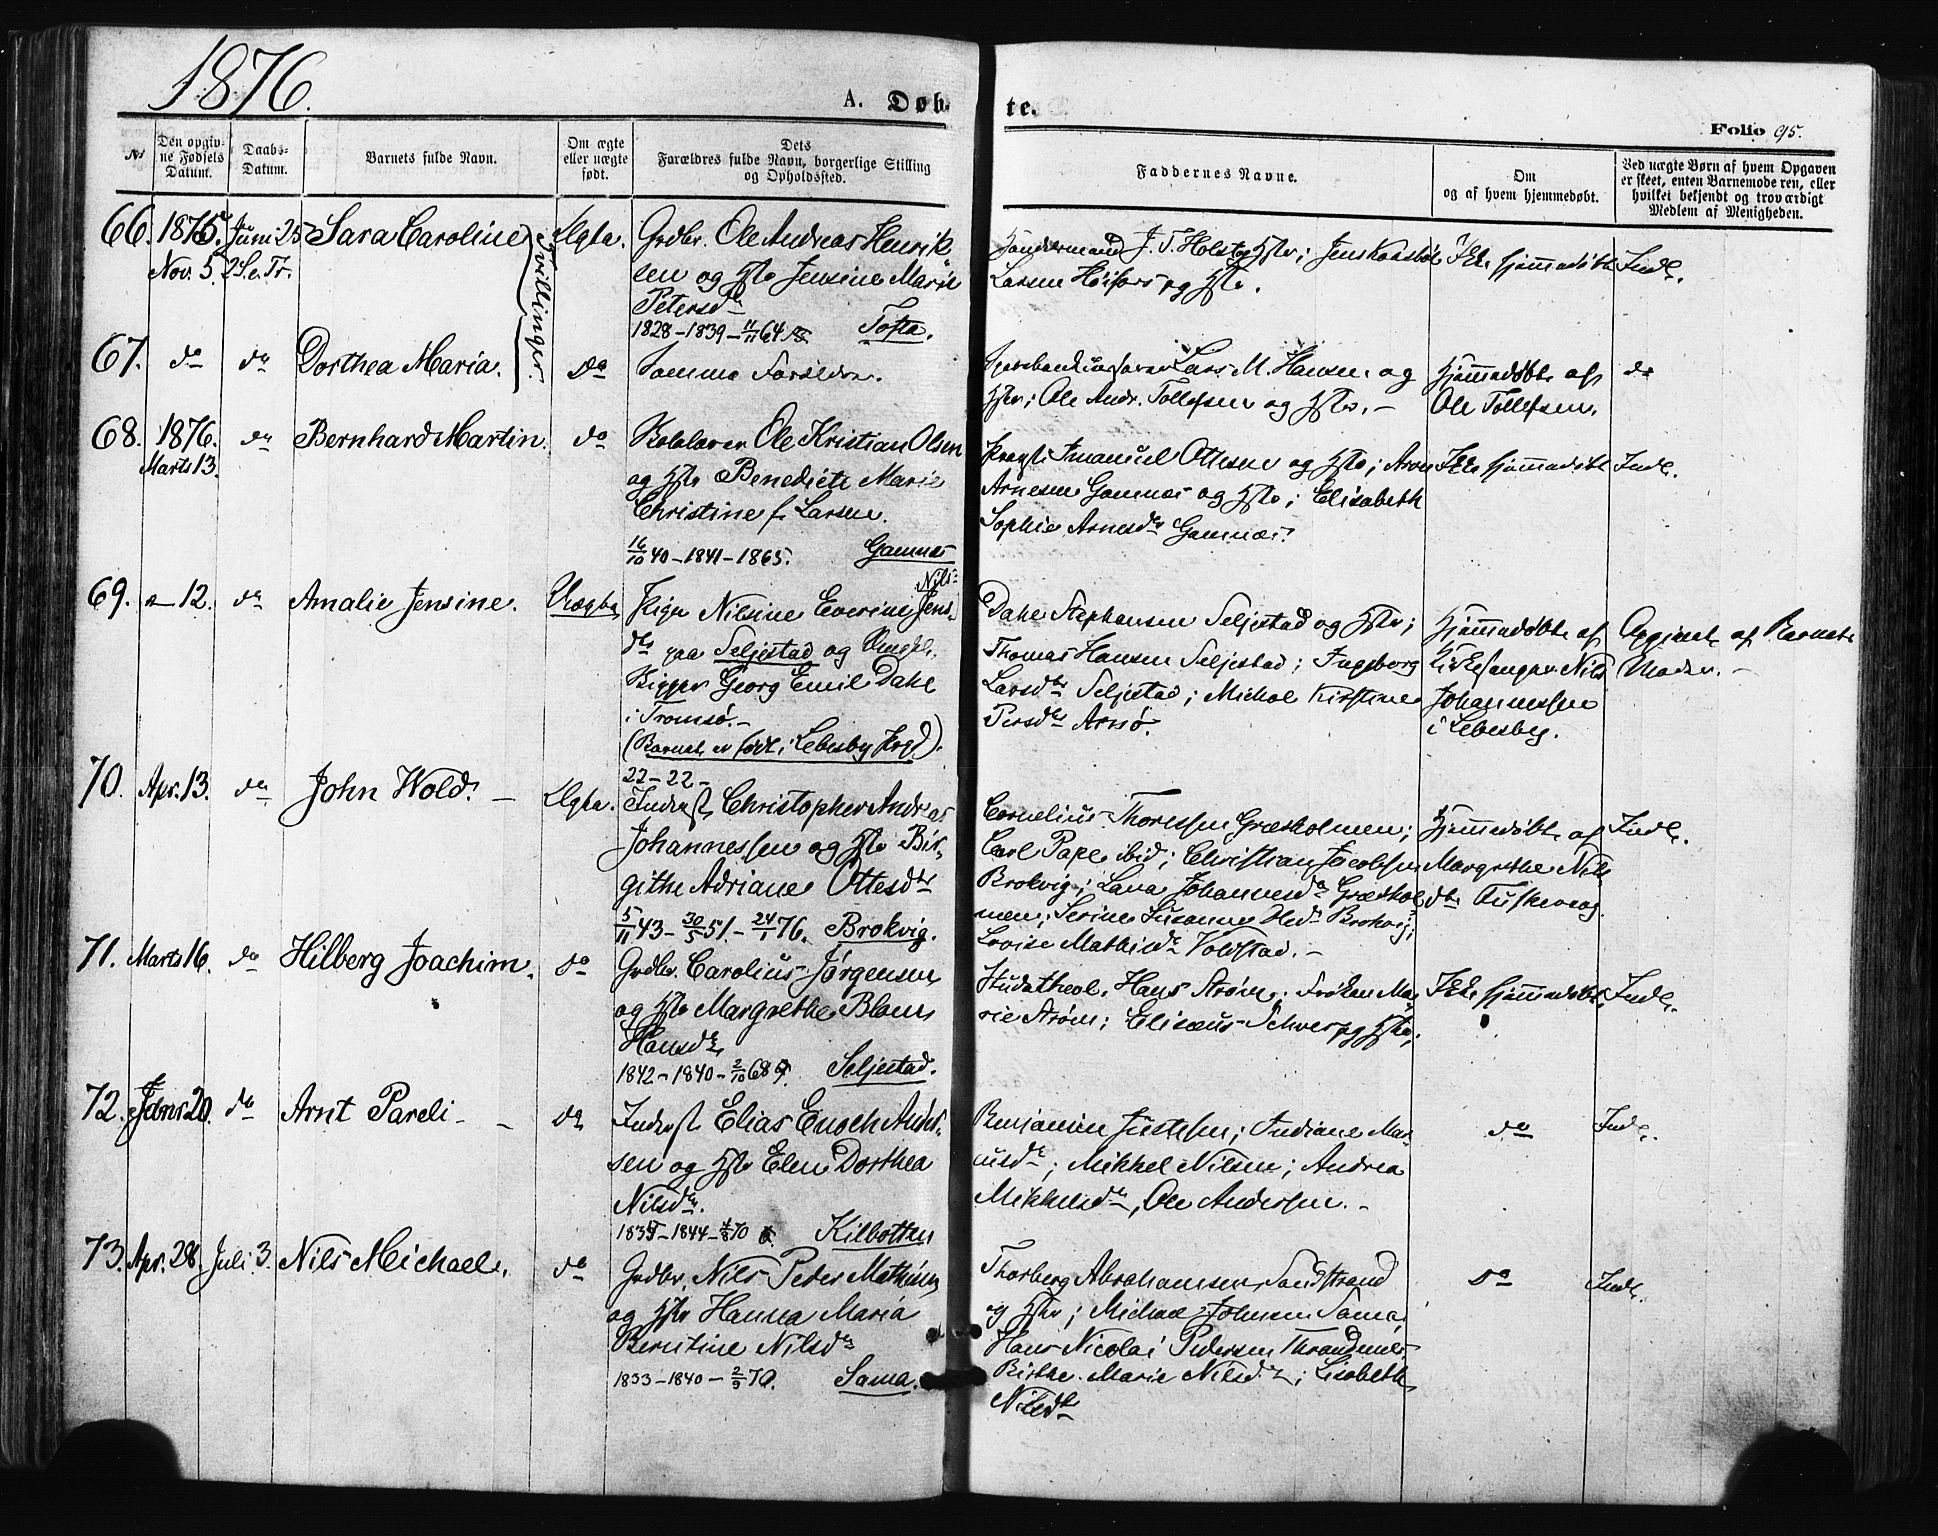 1876.
A. Døb-
te.
Folio 95.
No
Den opgiv-
ne Fødsels
Datum.
Daabs-
Datum.
Barnets fulde Navn.
Om ægte
eller uægte
født.
Dets
Forældres fulde Navn, borgerlige Stilling
og Opholdssted.
Faddernes Navne.
Om
og af hvem hjemmedøbt.
Ved uægte Børn af hvem Opgaven
er skeet, enten Barnemoderen, eller
hvilket bekjendt og troværdigt
Medlem af Menigheden.
66. 1875. Juni 25 Sara Caroline Ægte. Grdbr. Ole Andreas Henrik
Nov. 5. 2 S.e.Tr. sen og Hstr Jensine Marie
Petersd.
1828–1839–11/11 64. Tofta.
Tvillinger.
J. T. Holst og Hstr; Jens
Larsen Høifors og Hstr.
Ikke hjemmedøbt Indl.
67. do do Dorthea Maria. do Samme Forældre.
Lars M. Hansen og
Hstr; Ole Andr. Tollefsen og Hstr. –
Hjemmedøbt af
Ole Tollefsen.
do
68. 1876. do Bernhard Martin. do Ole Kristian Olsen
Marts 13. og Hstr Benedicte Marie
Christine f. Larsen.
16/10 40–1841–1865. Gamnes
Imanuel Ottesen og Hstr; Aron
Arnesen Gamnes og Hstr; Elisabeth
Sophie Arnesdr Gamnes.
Ikke hjemmedøbt Indl.
69. " 12. do Amalie Jensine. Uægte Pige Nilsine Everine Jens- Nils-
dr paa Seljestad og Ungk.
Bygger Georg Emil Dahl
i Tromsø. –
(Barnet er født i Lebesby Prgd).
22–22–
Dahl Stephansen Seljestad og Hstr;
Thomas Hansen Seljestad; Ingeborg
Larsdtr Seljestad; Michol Kirstine
Persdtr Arnø.
Hjemmedøbt af
Kirkesanger Nils
Johannessen
i Lebesby.
Opgivet af Barnets
Moder. –
70. Apr. 13. do John Wold. – Ægte. Inderst Christopher Andreas
Johannessen og Hstr Bir-
githe Adriane Ottesdtr
5/11 43–30/5 51.–24/1 76. Brokvig.
Cornelius Thoressen Græsholmen;
Carl Pape ibid; Christian Jacobsen
Brokvig; Lava Johannesdr Græshol-
men; Serine Susanne Oled. Brokvig;
Lovise Mathisdr Voldstad. –
Hjemmedøbt af
Margrethe Nils
dtr
Indl.
71. Marts 16. do Hilberg Joachim. do Grdbr. Carolius Jørgensen
og Hstr Margrethe Blom
Hansdr
1842–1840–2/10 68. Seljestad.
Studtheol. Hans Strøm; Frøken Ma-
rie Strøm; Elisæus Schver og Hstr.
Ikke hjemmedøbt. Indl.
72. 20. do Arnt Pareli – – do Inderst Elias Enoch Ander-
sen og Hstr Elen Dorthea
Nilsdtr.
1835–1844–70 Kilbotten
Benjamin Justesen; Indiane Mar-
; Mikkel Nilsen; Andrea
Mikkelsdtr, Ole Andersen. –
do Indl.
73. Apr. 28. Juli 3. Nils Michael. do Grdbr. Nils Peder Mathisen
og Hstr Hanna Maria
Berntine Nilsdtr
1833–1840–2/9 70. Sama.
Thorberg Abrahamsen Sandstrand
og Hstr; Michael Johnsen Sama;
Hans Nicolai Pedersen Thrandnes
Birthe Marie Nilsdtr; Lisabeth
Nilsdtr
do Indl.